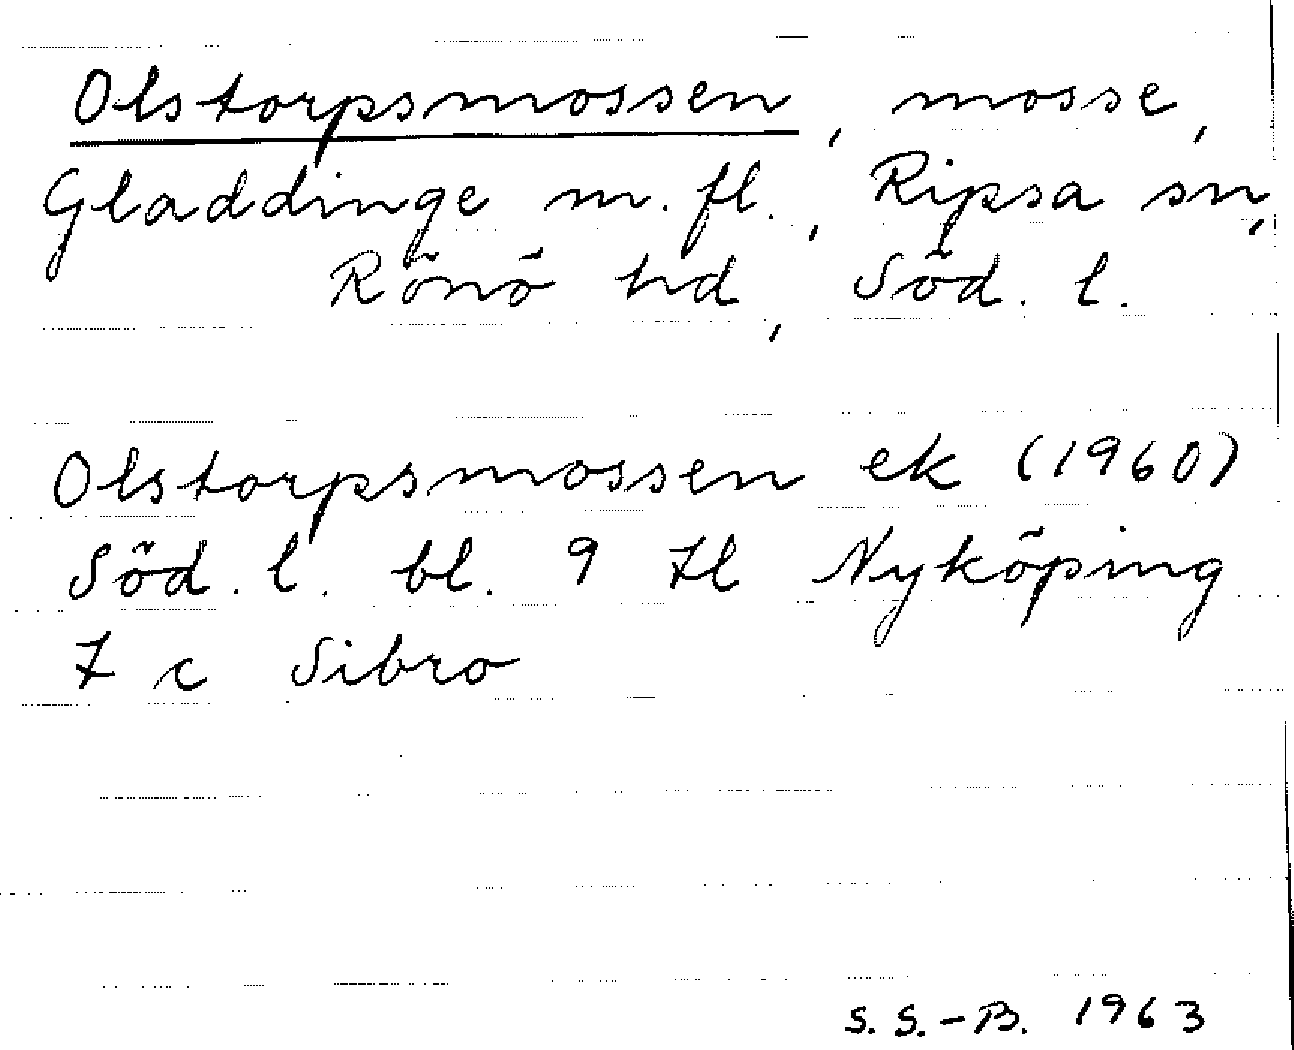 Olstorpsmossen, mosse,
Gladdinge m. fl., Ripsa sn,
Rönö hd, Söd. l.
Olstorpsmossen ek (1960)
Söd. l. bl. 9 Il Nyköping
7 c Sibro
S. S.-B. 1963